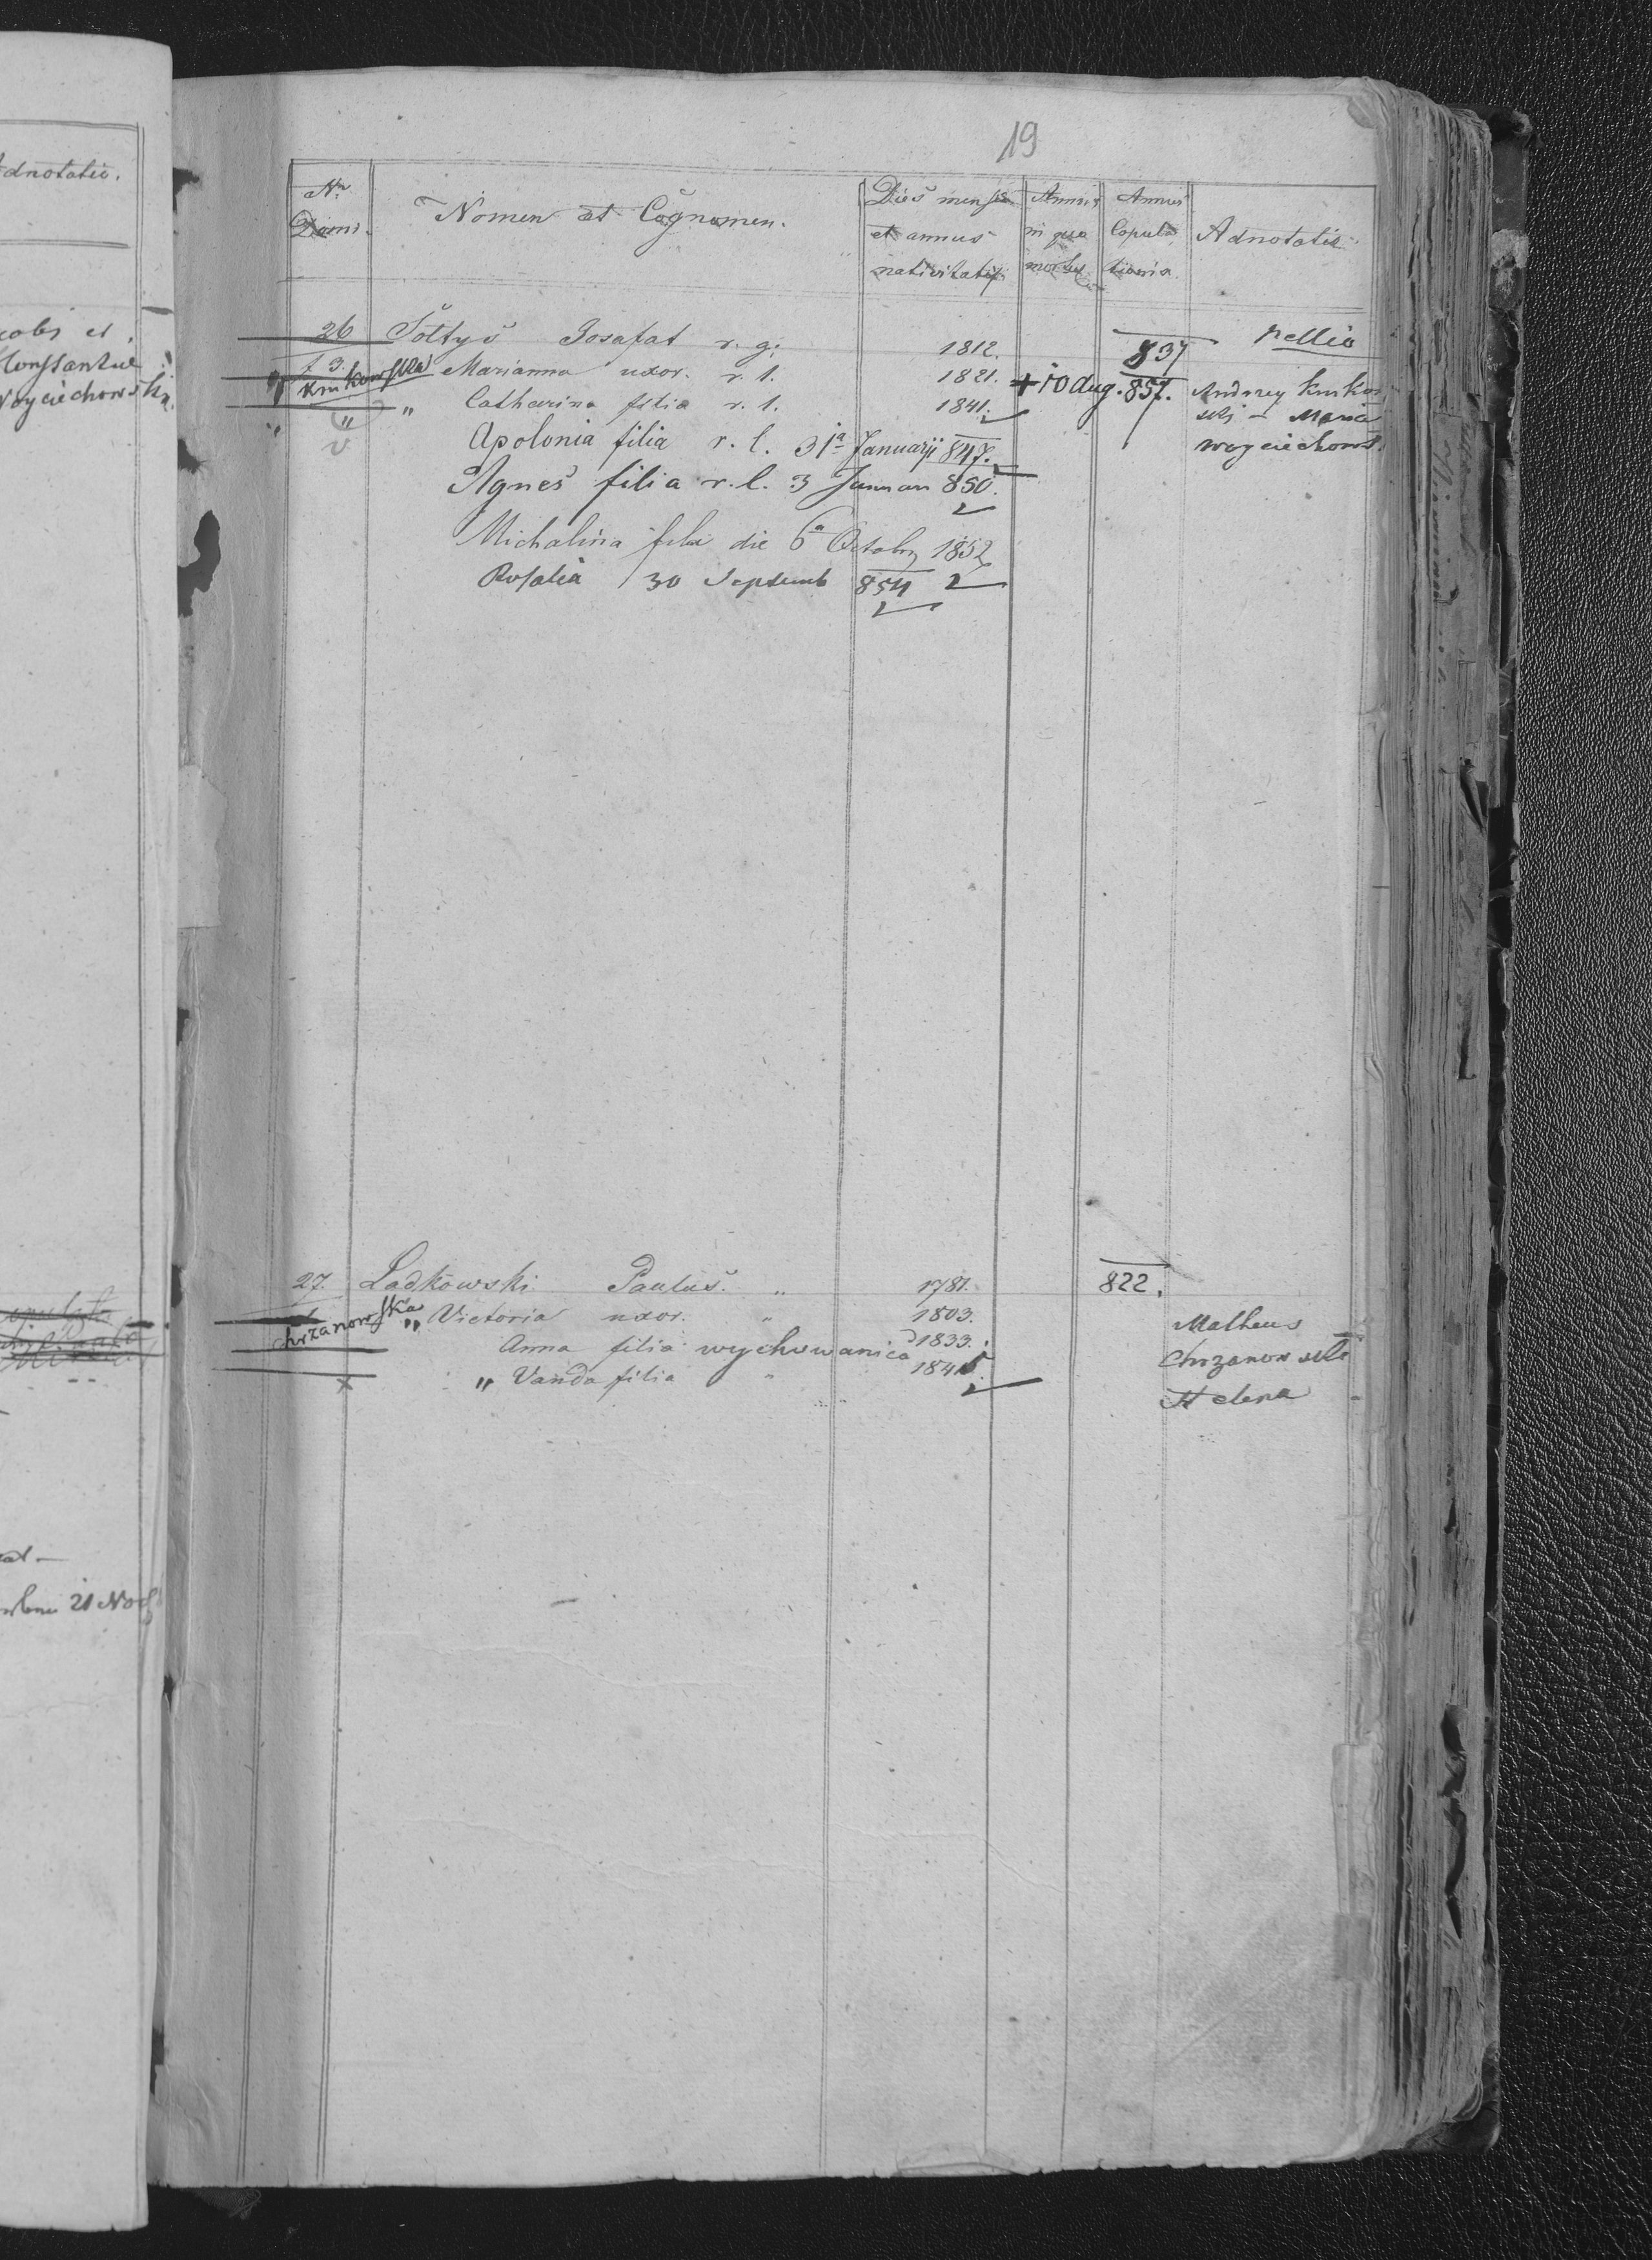 Adnotatio.
Constantiae
Woyciechowska.
21 Nov
19
Nr. Domi. Nomen et Cognomen. Dies mensis et annus nativitatis Annus in quo mortui Annus Copulationis Adnotatio.
26 Sołtys Josafat r. g. 1812. 837 pellio
Kmkowska Marianna uxor. r. l. 1821. + 10 Aug. 857. Andrzey
" Catharina filia r. l. 1841. Maria
Apolonia filia r. l. 31a Januarij 847. Woyciechows.
Agnes filia r. l. 3 Januari 850.
Michalina filia die 6a Octobr 1852
Rosalia 30 Septemb 854
27. Ladkowski Paulus. " 1781. 822.
Chrzanowska " Victoria uxor. " 1803. Matheus
Anna filia wychowanica 1833. Chrzanowski
x " Vanda filia " 1845. Helena